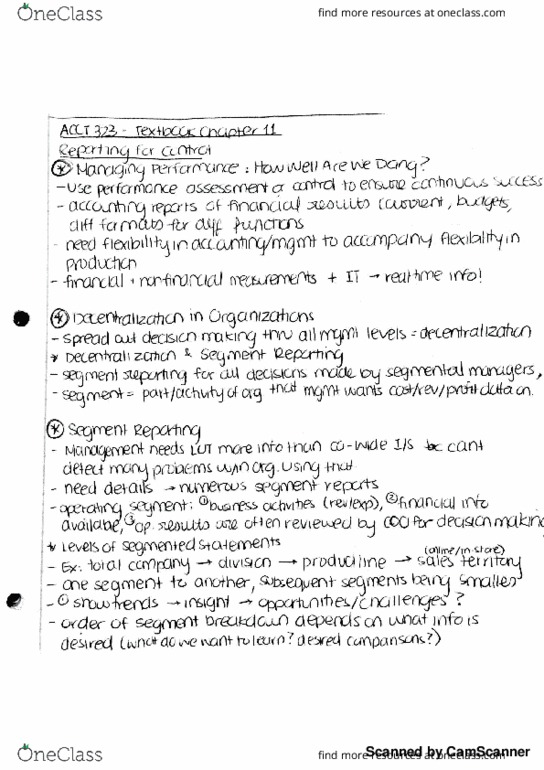 OneClass
find more resources at oneclass.com
ACCT 323 - Textbook Chapter 11
Reporting for Control
* Managing Performance: How Well Are We Doing?
- Use performance assessment & control to ensure continuous success
- accounting reports of financial results (current, budgets,
diff formats for diff functions
- need flexibility in accounting/mgmt to accompany flexibility in
production
- financial + nonfinancial measurements + IT → real time info!
* Decentralization in Organizations
- Spread out decision making thru all mgmt levels = decentralization
* Decentralization & Segment Reporting
- segment reporting for all decisions made by segmental managers,
- segment = part/activity of org that mgmt wants cost/rev/profit data on.
* Segment Reporting
- Management needs LOT more info than co-wide I/S bc cant
detect many problems w/in org. using that
- need details → numerous segment reports
- operating segment: ① business activities (rev/exp), ② financial info
available, ③ op. results are often reviewed by COO for decision making
* Levels of Segmented Statements
(online/in-store)
- Ex: total company → division → product line → sales territory
- one segment to another, subsequent segments being smaller
- ① show trends → insight → opportunities/challenges?
- order of segment breakdown depends on what info is
desired (what do we want to learn? desired comparisons?)
OneClass
find more resources at oneclass.com
Scanned by CamScanner